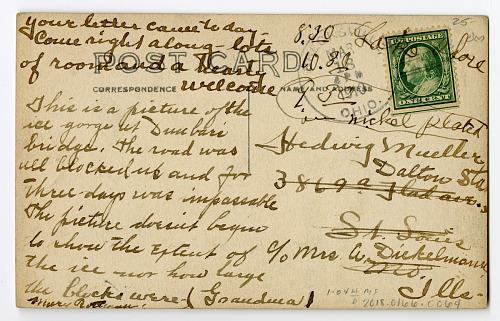 your letter came to day
Come right along - lots
of room and a hearty
welcome
POST CARD
CORRESPONDENCE
NAME AND ADDRESS
This is a picture of the
ice gorge at Dunbars
bridge. The road was
all blocked us and for
three days was impassable
The picture doesn't begin
to show the extent of
the ice nor how large
the blocks were (Grandma)
8.30
10.30
OHIO.
U.S. POSTAGE
ONE CENT
nickel plated
Hedwig Mueller
Dalton Sta
3869
ave.
St. Louis
c/o Mrs A. Dickelmann
Mo
Ills.
25-
2018.0166.0064